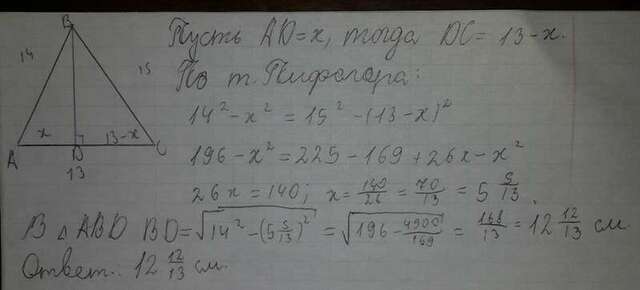 B
14
15
x
13-x
A
D
C
13
Пусть AD=x, тогда DC= 13-x.
По т. Пифагора:
14²-x² = 15²-(13-x)²
196-x² = 225-169+26x-x²
26x = 140; x = 140/26 = 70/13 = 5 5/13.
В △ ABD BD = √(14²-(5 5/13)²) = √(196-4900/169) = 168/13 = 12 12/13 см.
Ответ: 12 12/13 см.